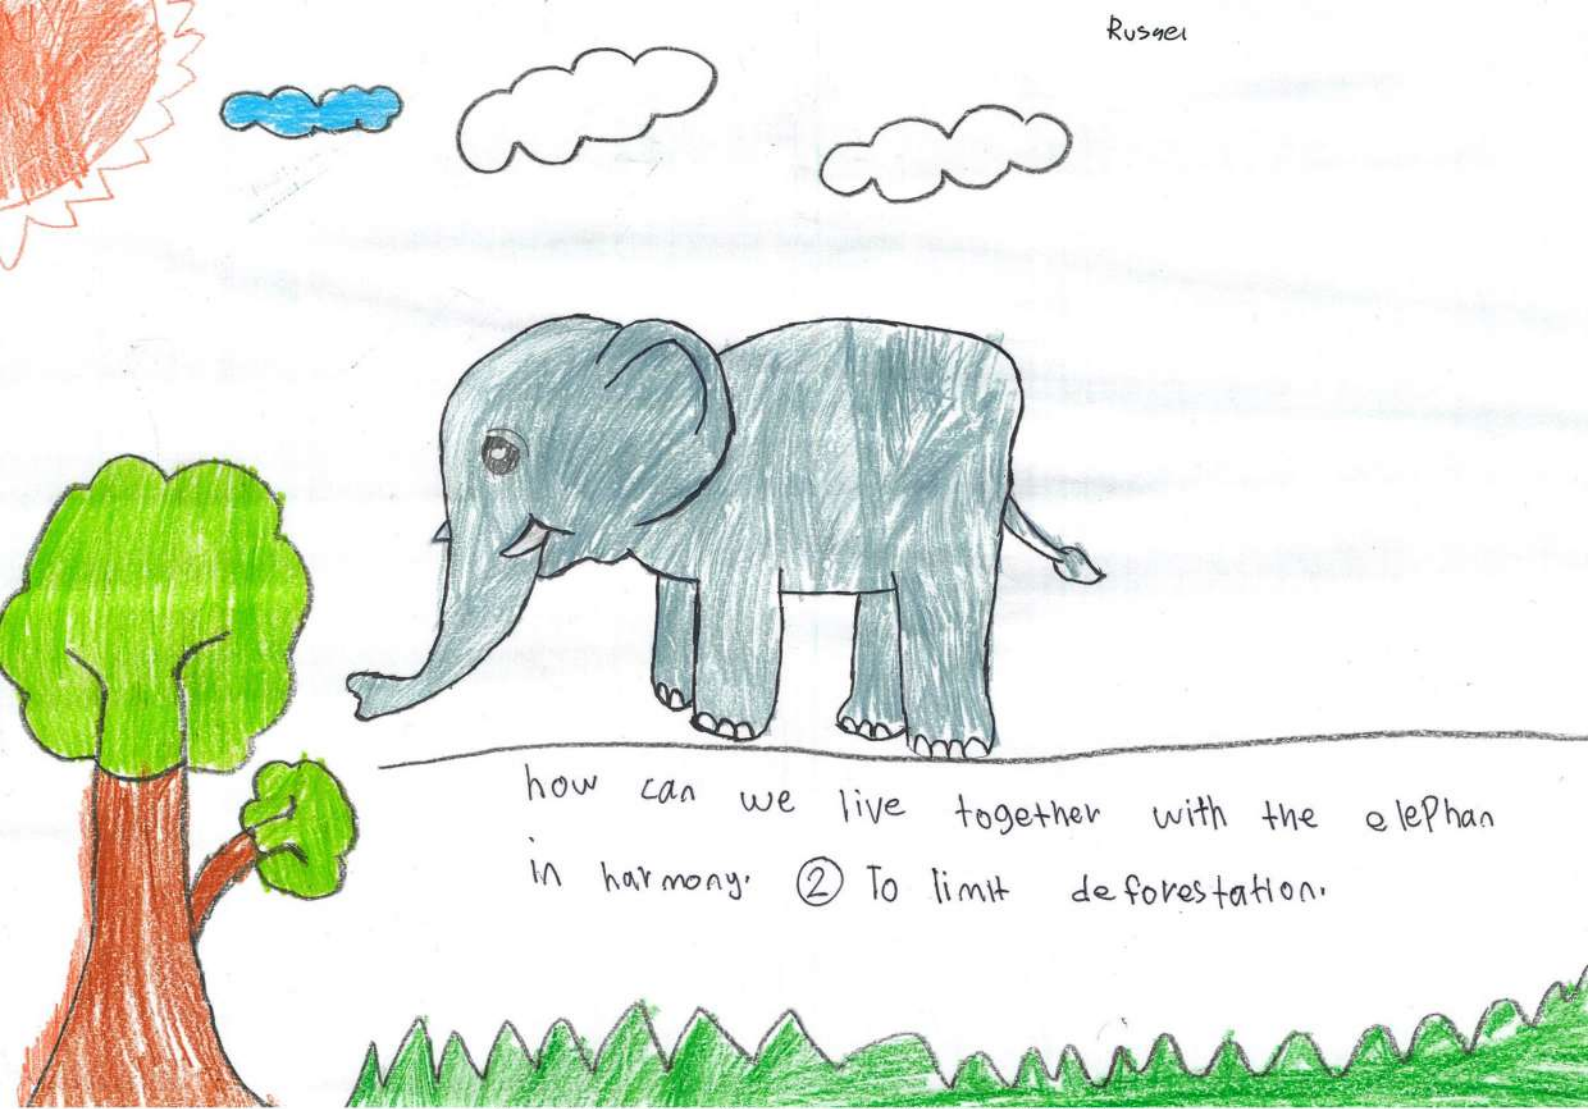 Rusgei
how can we live together with the elephan
in harmony. ② To limit deforestation.